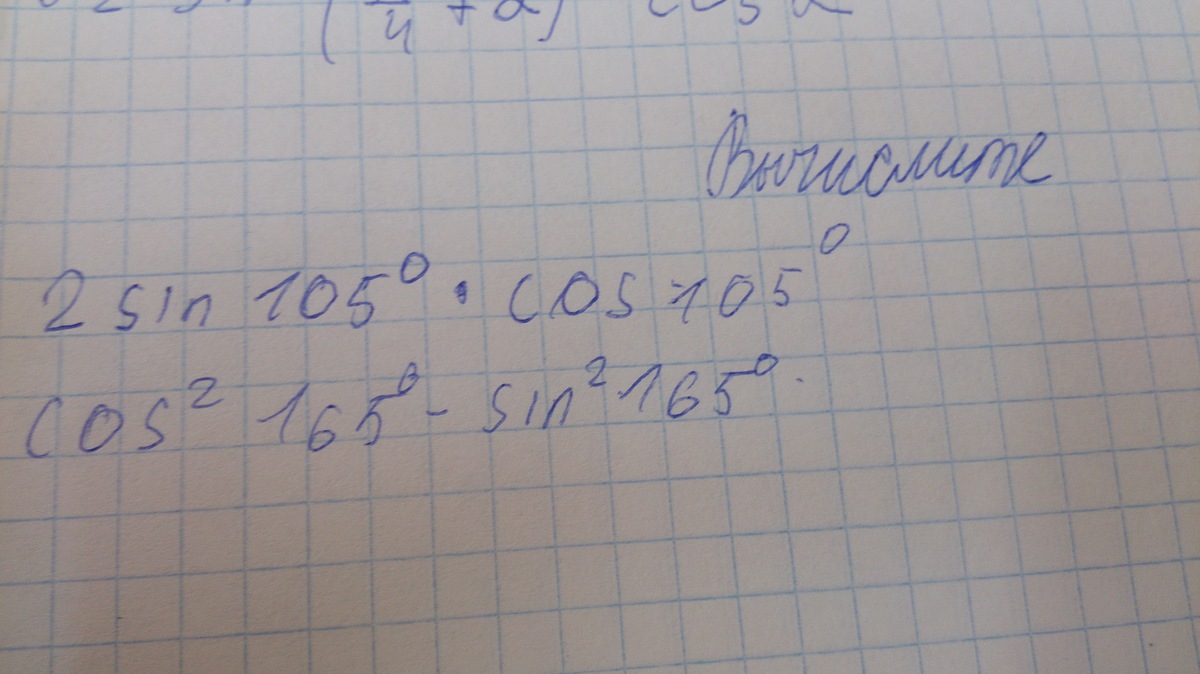 (π/4 + α) cos α
Вычислите
2 sin 105° · cos 105°
cos² 165° - sin² 165°.